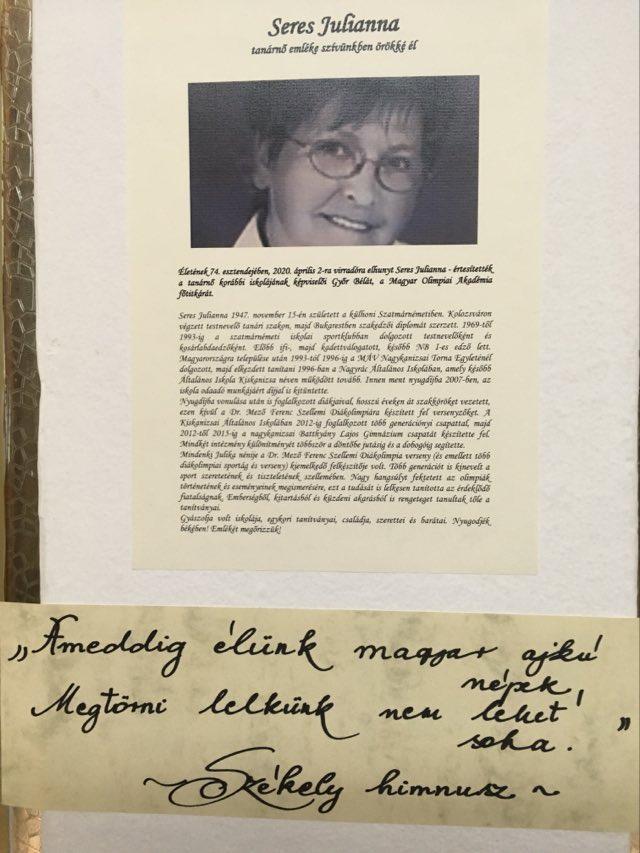 Seres Julianna
tanárnő emléke szívünkben örökké él
Életének 74. esztendejében, 2020. április 2-ra virradóra elhunyt Seres Julianna - értesítették
a tanárnő korábbi iskolájának képviselői Győr Bélát, a Magyar Olimpiai Akadémia
főtitkárát.
Seres Julianna 1947. november 15-én született a külhoni Szatmárnémetiben. Kolozsváron
végzett testnevelő tanári szakon, majd Bukarestben szakedzői diplomát szerzett. 1969-től
1993-ig a szatmárnémeti iskolai sportklubban dolgozott testnevelőként és
kosárlabdaedzőként. Előbb ifi-, majd kadettválogatott, később NB I-es edző lett.
Magyarországra települése után 1993-tól 1996-ig a MÁV Nagykanizsai Torna Egyleténél
dolgozott, majd elkezdett tanítani 1996-ban a Nagyrác Általános Iskolában, amely később
Általános Iskola Kiskanizsa néven működött tovább. Innen ment nyugdíjba 2007-ben, az
iskola odaadó munkájáért díjjal is kitüntette.
Nyugdíjba vonulása után is foglalkozott diákjaival, hosszú éveken át szakköröket vezetett,
ezen kívül a Dr. Mező Ferenc Szellemi Diákolimpiára készített fel versenyzőket. A
Kiskanizsai Általános Iskolában 2012-ig foglalkozott több generációnyi csapattal, majd
2012-től 2015-ig a nagykanizsai Batthyány Lajos Gimnázium csapatát készítette fel.
Mindkét intézmény különítményét többször a döntőbe jutásig és a dobogóig segítette.
Mindenki Julika nénije a Dr. Mező Ferenc Szellemi Diákolimpia verseny (és emellett több
diákolimpiai sportág és verseny) kiemelkedő felkészítője volt. Több generációt is kinevelt a
sport szeretetének és tiszteletének szellemében. Nagy hangsúlyt fektetett az olimpiák
történetének és eseményeinek megismerésére, ezt a tudását is lelkesen tanította az érdeklődő
fiataloknak. Emberségből, kitartásból és küzdeni akarásból is rengeteget tanultak tőle a
tanítványai.
Gyászolja volt iskolája, egykori tanítványai, családja, szerettei és barátai. Nyugodjék
békében! Emlékét megőrizzük!
„Ameddig élünk magyar ajkú
népek,
Megtörni lelkünk nem lehet
soha.”
~ Székely himnusz ~